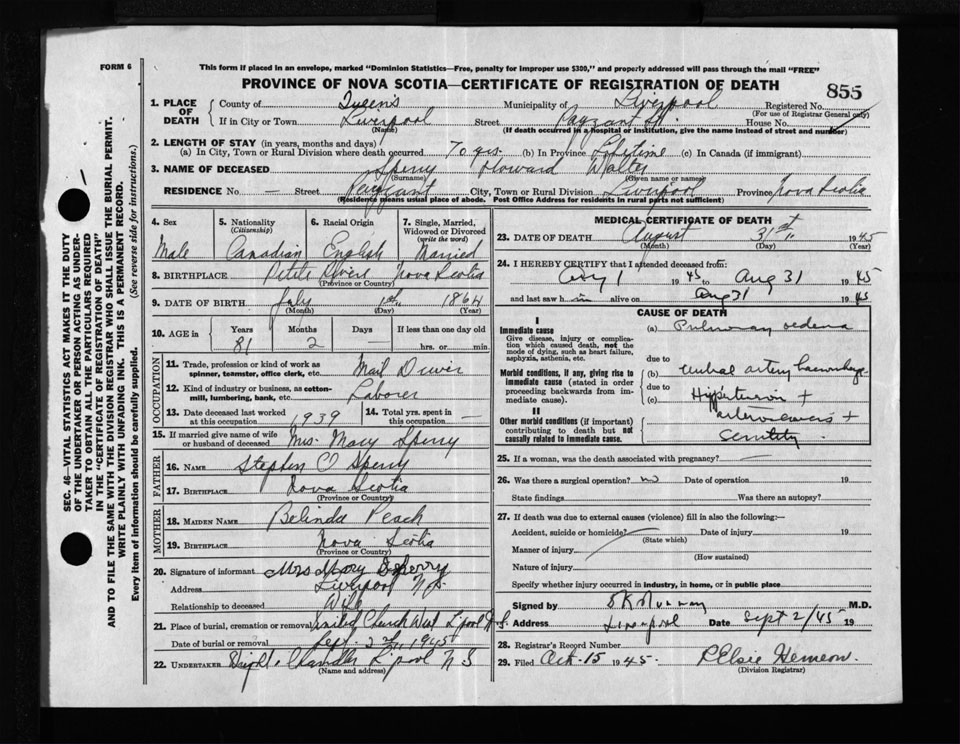 FORM 6
This form if placed in an envelope, marked "Dominion Statistics—Free, penalty for improper use $300," and properly addressed will pass through the mail "FREE"
PROVINCE OF NOVA SCOTIA—CERTIFICATE OF REGISTRATION OF DEATH
855
1. PLACE OF DEATH
County of Queens Municipality of Liverpool Registered No.
(For use of Registrar General only)
If in City or Town Liverpool Street House No.
(Name) (If death occurred in a hospital or institution, give the name instead of street and number)
2. LENGTH OF STAY (in years, months and days)
(a) In City, Town or Rural Division where death occurred 70 yrs. (b) In Province Lifetime (c) In Canada (if immigrant)
3. NAME OF DECEASED Sperry Howard Walter
(Surname) (Given name or names)
RESIDENCE No. — Street City, Town or Rural Division Liverpool Province Nova Scotia
(Residence means usual place of abode. Post Office Address for residents in rural parts not sufficient)
4. Sex Male
5. Nationality (Citizenship) Canadian
6. Racial Origin English
7. Single, Married, Widowed or Divorced (write the word) Married
8. BIRTHPLACE Petite Riviere Nova Scotia
(Province or Country)
9. DATE OF BIRTH July 1st 1864
(Month) (Day) (Year)
10. AGE in Years Months Days If less than one day old
81 2 hrs. or min.
OCCUPATION
11. Trade, profession or kind of work as spinner, teamster, office clerk, etc. Mail Driver
12. Kind of industry or business, as cotton-mill, lumbering, bank, etc. Laborer
13. Date deceased last worked at this occupation 1939
14. Total yrs. spent in this occupation —
15. If married give name of wife or husband of deceased Mrs. Mary Sperry
FATHER
16. NAME Stephen O Sperry
17. BIRTHPLACE Nova Scotia
(Province or Country)
MOTHER
18. MAIDEN NAME Belinda Peach
19. BIRTHPLACE Nova Scotia
(Province or Country)
20. Signature of informant Mrs Mary Sperry
Address Liverpool N.S.
Relationship to deceased Wife
21. Place of burial, cremation or removal United Church West L'pool N.S.
Date of burial or removal Sept. 2nd, 1945
22. UNDERTAKER Chandler L'pool N S
(Name and address)
MEDICAL CERTIFICATE OF DEATH
23. DATE OF DEATH August 31st 1945
(Month) (Day) (Year)
24. I HEREBY CERTIFY that I attended deceased from:
Aug 1 1945 to Aug 31 1945
and last saw him alive on Aug 31 1945
CAUSE OF DEATH
I
Immediate cause
Give disease, injury or complication which caused death, not the mode of dying, such as heart failure, asphyxia, asthenia, etc.
(a) Pulmonary oedema
due to
Morbid conditions, if any, giving rise to immediate cause (stated in order proceeding backwards from immediate cause).
(b) artery haemorrhage
due to
(c) Hypertension +
II
Other morbid conditions (if important) contributing to death but not causally related to immediate cause.
+
Senility
25. If a woman, was the death associated with pregnancy? —
26. Was there a surgical operation? no Date of operation 19
State findings Was there an autopsy?
27. If death was due to external causes (violence) fill in also the following:—
Accident, suicide or homicide? Date of injury 19
(State which)
Manner of injury
(How sustained)
Nature of injury
Specify whether injury occurred in industry, in home, or in public place
Signed by M.D.
Address Liverpool Date Sept 2/45 19
28. Registrar's Record Number
29. Filed Oct. 15 1945. Elsie Hemeon.
(Division Registrar)
SEC. 46—VITAL STATISTICS ACT MAKES IT THE DUTY
OF THE UNDERTAKER OR PERSON ACTING AS UNDERTAKER
TO OBTAIN ALL THE PARTICULARS REQUIRED
IN THE "CERTIFICATE OF REGISTRATION OF DEATH"
AND TO FILE THE SAME WITH THE DIVISION REGISTRAR WHO SHALL ISSUE THE BURIAL PERMIT.
WRITE PLAINLY WITH UNFADING INK. THIS IS A PERMANENT RECORD.
Every item of information should be carefully supplied. (See reverse side for instructions.)